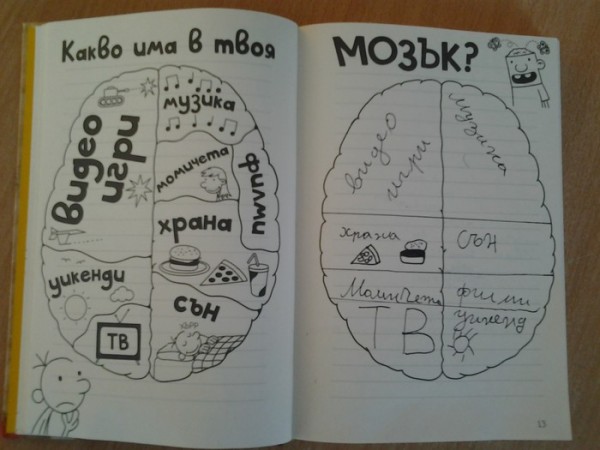 Какво има в твоя
МОЗЪК?
видео
игри
музика
момичета
филми
храна
уикенди
сън
ТВ
видео
игри
музика
храна
сън
Момичета
филми
ТВ
уикенд
13